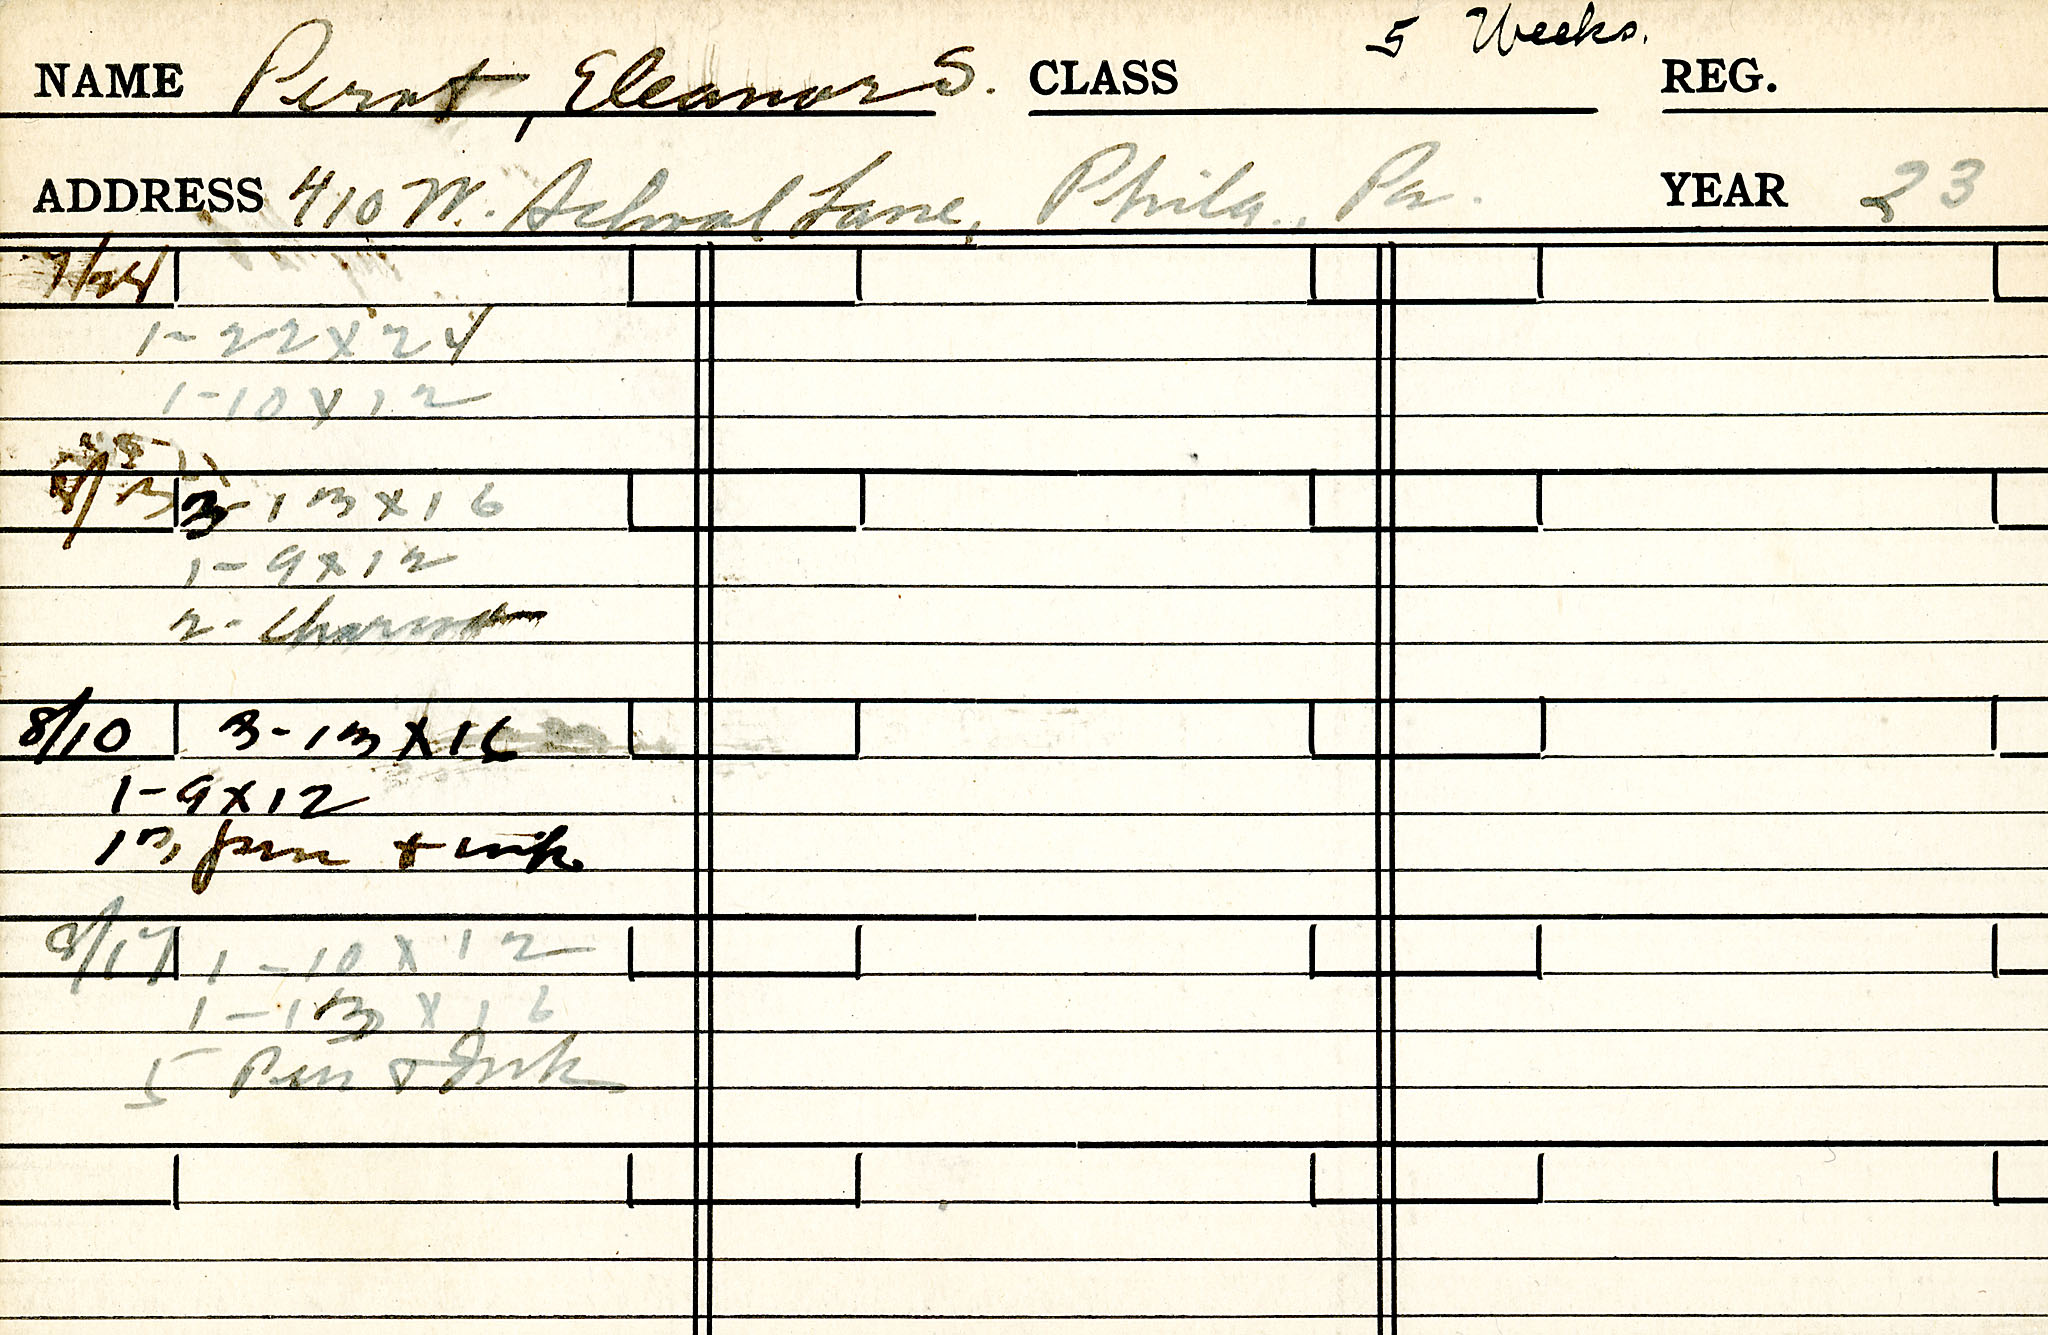 5 Weeks.
NAME Perot, Eleanor S. CLASS REG.
ADDRESS 410 W. School Lane, Phila., Pa. YEAR 23
7/24
1-22x24
1-10x12
8/3 3-13x16
1-9x12
2-
8/10 3-13x16
1-9x12
13 pen + ink
8/17 1-10x12
1-13x16
5 Pen & Ink